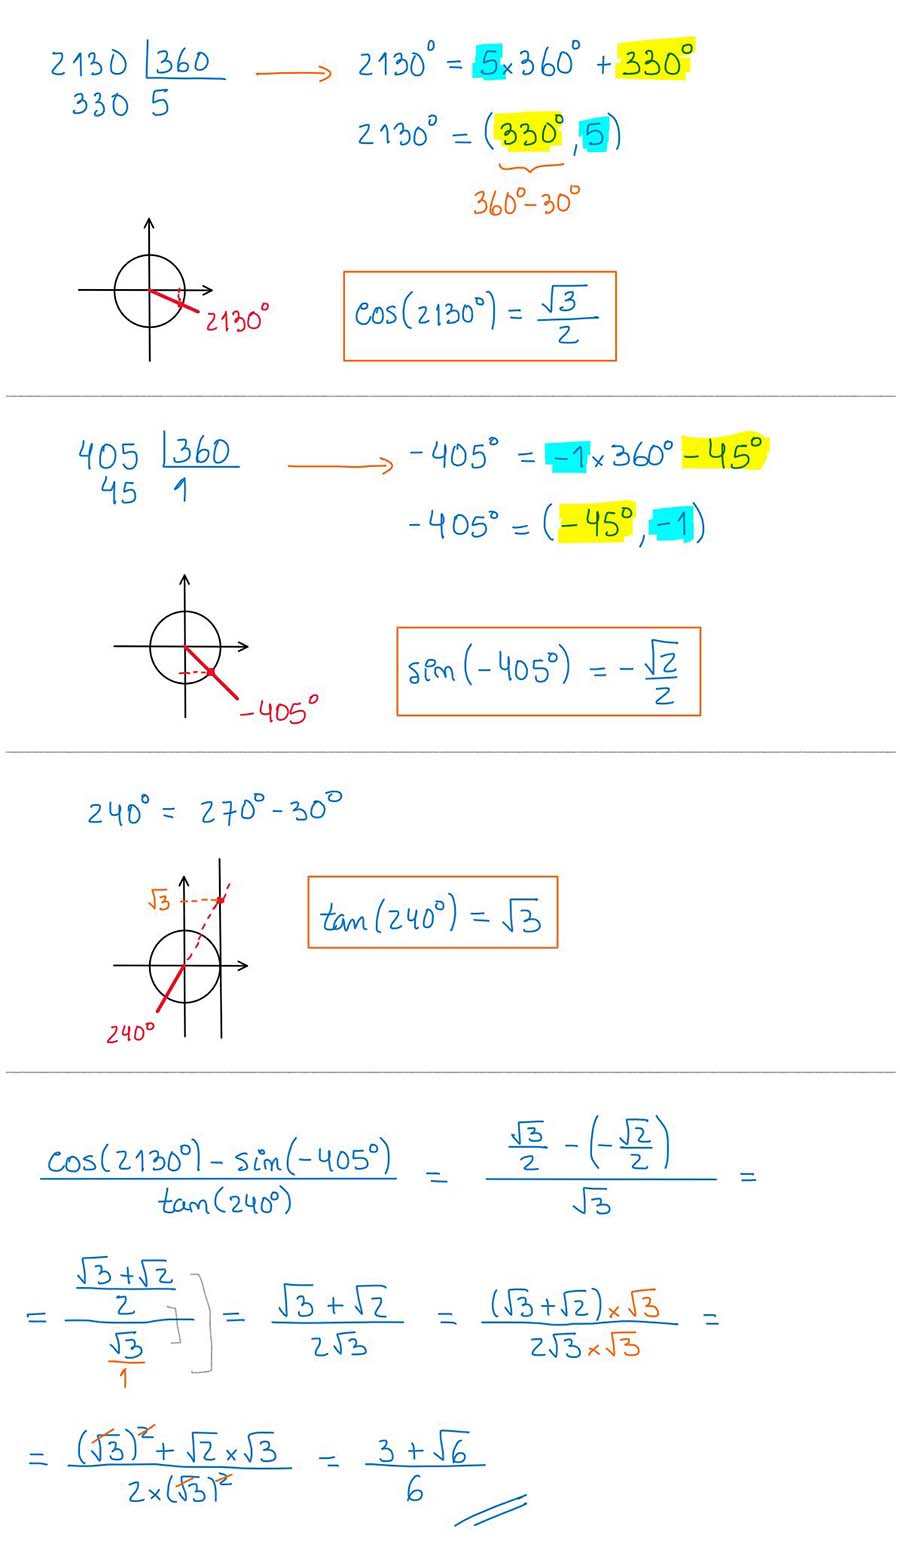 2130 |360 → 2130° = 5×360° + 330°
330 5
2130° = (330°, 5)
360°-30°
2130°
cos(2130°) = √3/2
405 |360 → -405° = -1×360° -45°
45 1
-405° = (-45°, -1)
-405°
sin(-405°) = -√2/2
240° = 270°-30°
√3
tan(240°) = √3
240°
(cos(2130°) - sin(-405°))/tan(240°) = (√3/2 - (-√2/2))/√3 =
= ((√3+√2)/2)/(√3/1) = (√3+√2)/(2√3) = ((√3+√2)×√3)/(2√3×√3) =
= ((√3)²+√2×√3)/(2×(√3)²) = (3+√6)/6